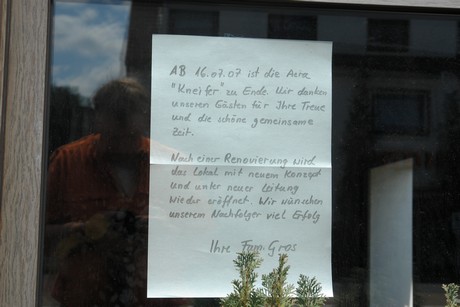 AB 16.07.07 ist die Aera
"Kneifer" zu Ende. Wir danken
unseren Gästen für Ihre Treue
und die schöne gemeinsame
Zeit.
Nach einer Renovierung wird
das Lokal mit neuem Konzept
und unter neuer Leitung
wieder eröffnet. Wir wünschen
unserem Nachfolger viel Erfolg
Ihre Fam. Gros